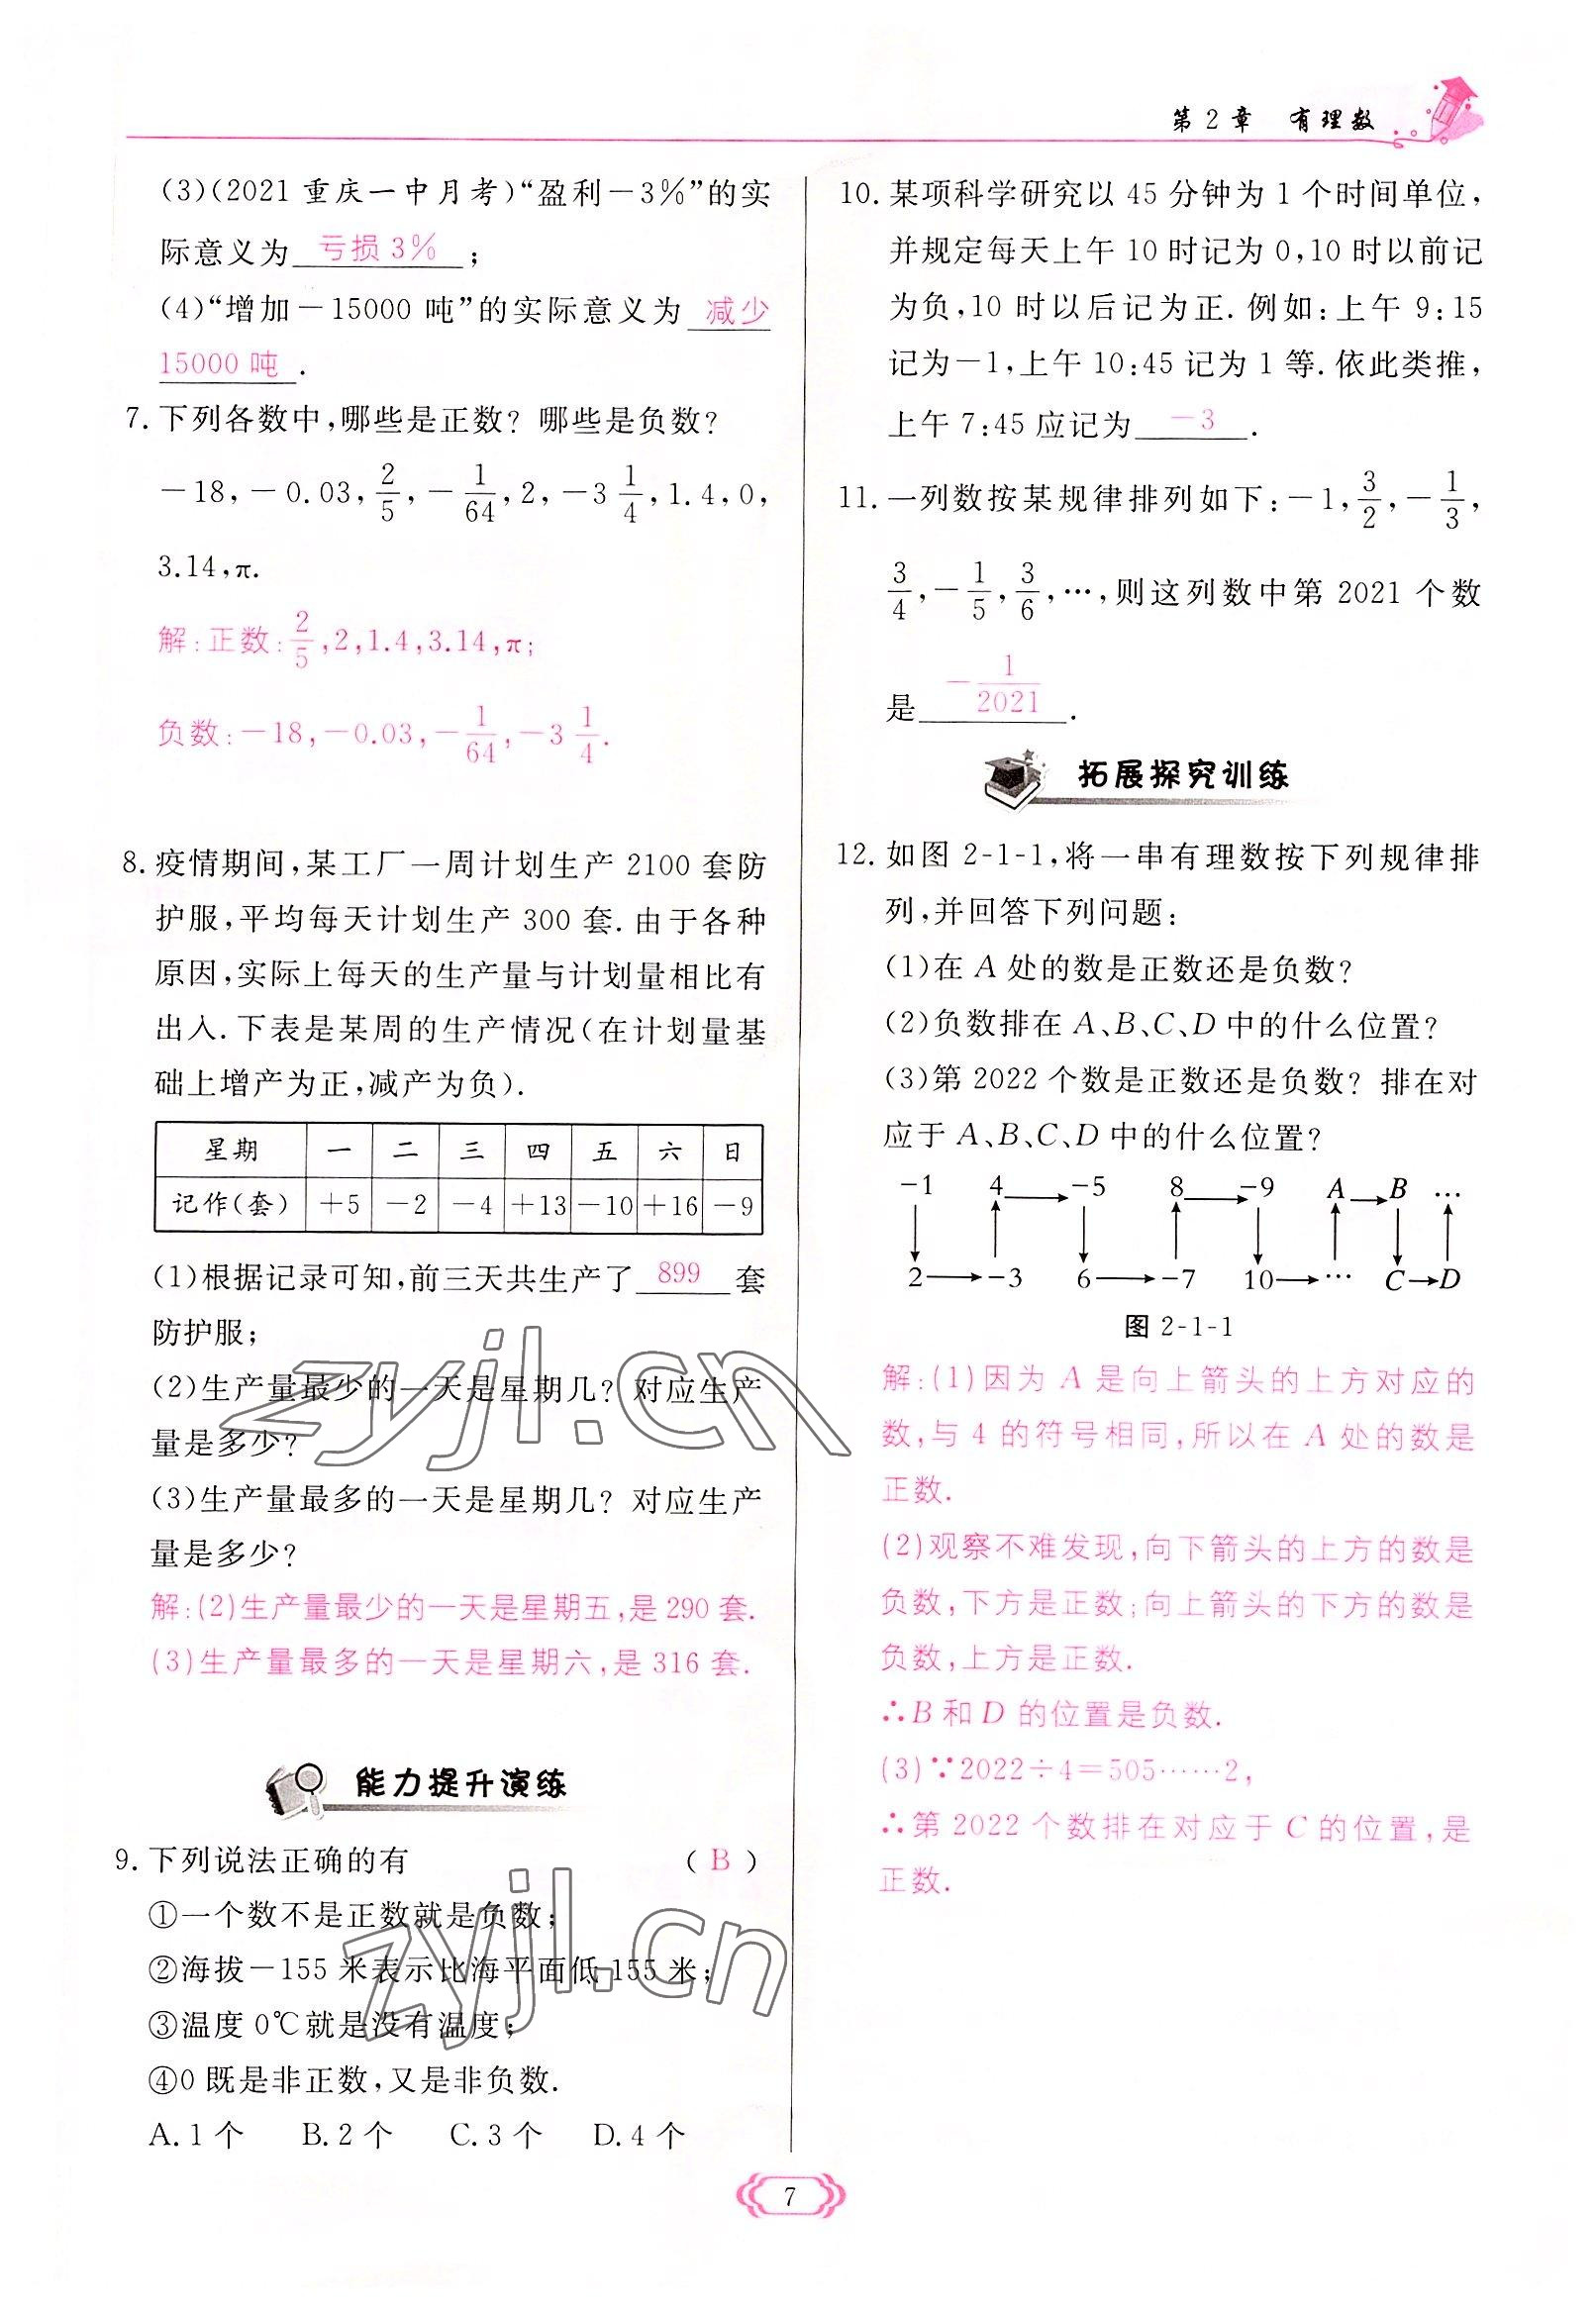 第2章 有理数
(3)(2021 重庆一中月考)“盈利－3%”的实
际意义为 亏损3% ;
(4)“增加－15000 吨”的实际意义为 减少
15000吨 .
7. 下列各数中,哪些是正数? 哪些是负数?
－18,－0.03,2/5,－1/64,2,－3 1/4,1.4,0,
3.14,π.
解:正数:2/5,2,1.4,3.14,π;
负数:－18,－0.03,－1/64,－3 1/4.
8. 疫情期间,某工厂一周计划生产 2100 套防
护服,平均每天计划生产 300 套. 由于各种
原因,实际上每天的生产量与计划量相比有
出入. 下表是某周的生产情况(在计划量基
础上增产为正,减产为负).
星期 一 二 三 四 五 六 日
记作(套) ＋5 －2 －4 ＋13 －10 ＋16 －9
(1)根据记录可知,前三天共生产了 899 套
防护服;
(2)生产量最少的一天是星期几? 对应生产
量是多少?
(3)生产量最多的一天是星期几? 对应生产
量是多少?
解:(2)生产量最少的一天是星期五,是290套.
(3)生产量最多的一天是星期六,是316套.
能力提升演练
9. 下列说法正确的有 ( B )
①一个数不是正数就是负数;
②海拔－155 米表示比海平面低 155 米;
③温度 0℃就是没有温度;
④0 既是非正数,又是非负数.
A. 1 个 B. 2 个 C. 3 个 D. 4 个
10. 某项科学研究以 45 分钟为 1 个时间单位,
并规定每天上午 10 时记为 0,10 时以前记
为负,10 时以后记为正. 例如:上午 9:15
记为－1,上午 10:45 记为 1 等. 依此类推,
上午 7:45 应记为 －3 .
11. 一列数按某规律排列如下:－1,3/2,－1/3,
3/4,－1/5,3/6,…,则这列数中第 2021 个数
是 －1/2021 .
拓展探究训练
12. 如图 2-1-1,将一串有理数按下列规律排
列,并回答下列问题:
(1)在 A 处的数是正数还是负数?
(2)负数排在 A、B、C、D 中的什么位置?
(3)第 2022 个数是正数还是负数? 排在对
应于 A、B、C、D 中的什么位置?
－1 4→－5 8→－9 A→B …
2→－3 6→－7 10→… C→D
图 2-1-1
解:(1)因为 A 是向上箭头的上方对应的
数,与 4 的符号相同,所以在 A 处的数是
正数.
(2)观察不难发现,向下箭头的上方的数是
负数,下方是正数;向上箭头的下方的数是
负数,上方是正数.
∴B 和 D 的位置是负数.
(3)∵2022÷4＝505……2,
∴第 2022 个数排在对应于 C 的位置,是
正数.
zyjl.cn
zyjl.cn
7